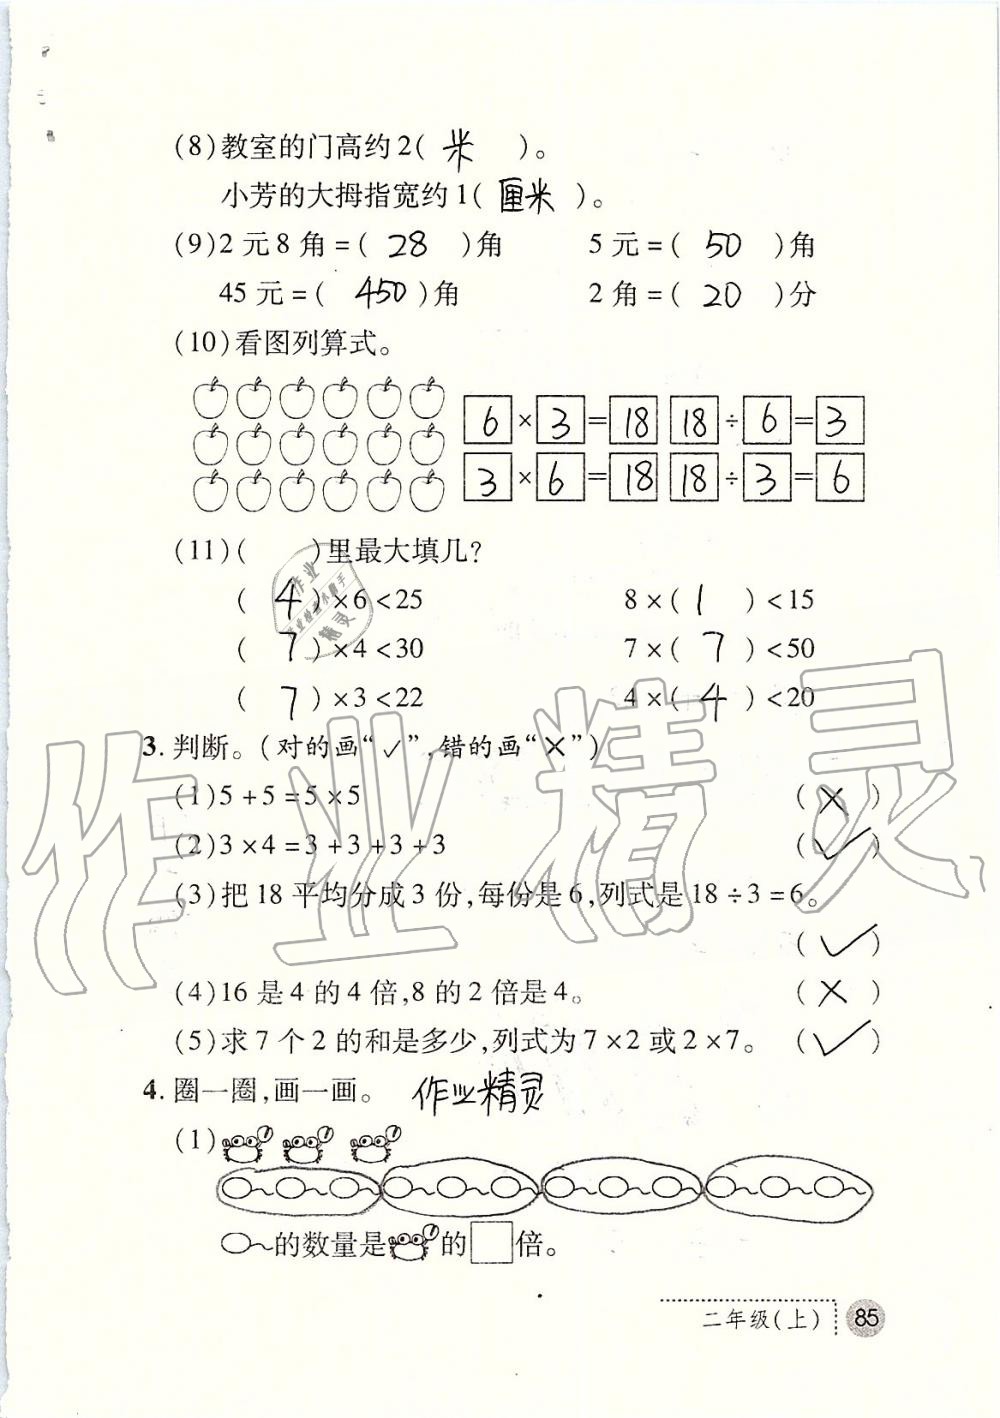 (8)教室的门高约2( 米 )。
小芳的大拇指宽约1( 厘米 )。
(9)2元8角=( 28 )角 5元=( 50 )角
45元=( 450 )角 2角=( 20 )分
(10)看图列算式。
6×3=18 18÷6=3
3×6=18 18÷3=6
(11)( )里最大填几?
( 4 )×6<25 8×( 1 )<15
( 7 )×4<30 7×( 7 )<50
( 7 )×3<22 4×( 4 )<20
3. 判断。(对的画“✓”,错的画“✕”)
(1)5+5=5×5 ( ✕ )
(2)3×4=3+3+3+3 ( ✓ )
(3)把18平均分成3份,每份是6,列式是18÷3=6。
( ✓ )
(4)16是4的4倍,8的2倍是4。 ( ✕ )
(5)求7个2的和是多少,列式为7×2或2×7。 ( ✓ )
4. 圈一圈,画一画。 作业精灵
(1)
的数量是 的 倍。
二年级(上) 85
作业精灵
作业
精灵